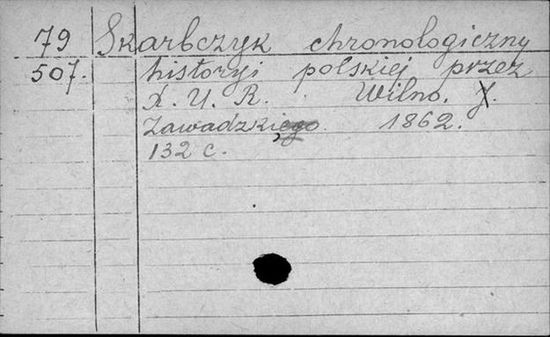 79 Skarbczyk chronologiczny
507. historyi polskiej przez
X. U. R. Wilno. J.
Zawadzkiego. 1862.
132 c.